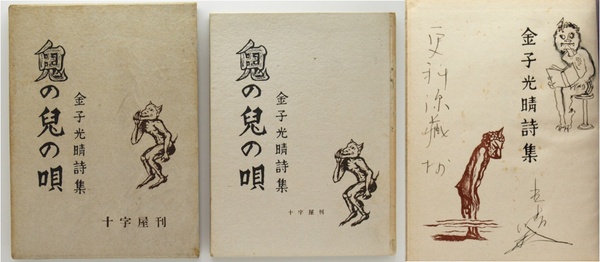 鬼の兒の唄
金子光晴詩集
十字屋刊
鬼の兒の唄
金子光晴詩集
十字屋刊
金子光晴詩集
更科源藏